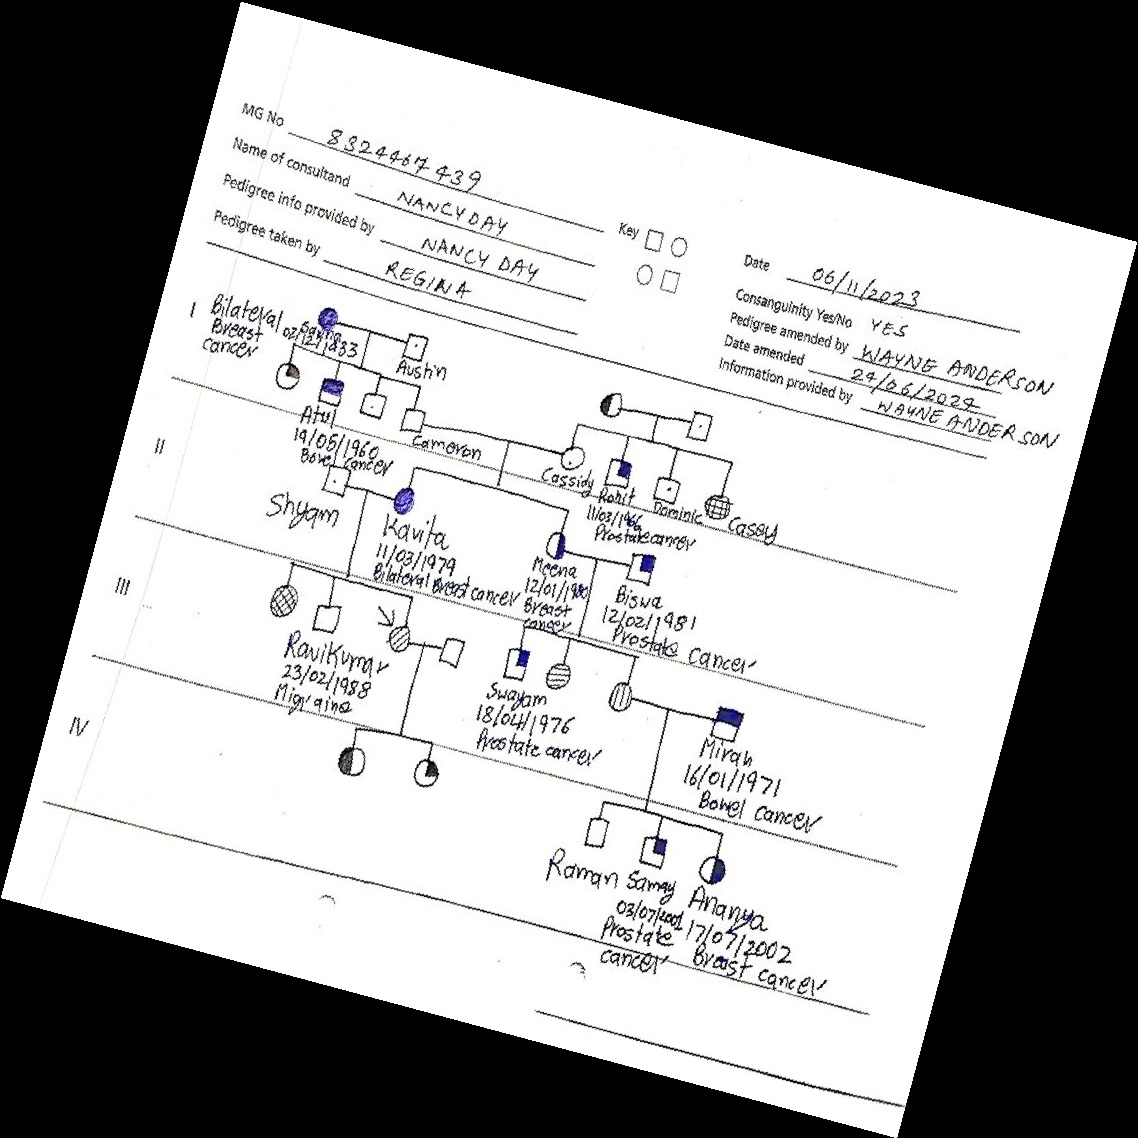 MG No 8324467439
Name of consultand NANCY DAY
Pedigree info provided by NANCY DAY
Pedigree taken by REGINA
Key
Date 06/11/2023
Consanguinity Yes/No YES
Pedigree amended by WAYNE ANDERSON
Date amended 24/06/2024
Information provided by WAYNE ANDERSON
I
Bilateral
Breast
cancer
Austin
Atul
19/05/1960
Bowel cancer
Cameron
II
Cassidy
Rohit
11/03/1966
Prostate cancer
Dominic
Casey
Shyam
Kavita
11/03/1979
Bilateral Breast cancer
Meena
12/01/1980
Breast
cancer
Biswa
12/02/1981
Prostate cancer
III
Ravikumar
23/02/1988
Migraine
Swayam
18/04/1976
Prostate cancer
Mirah
16/01/1971
Bowel cancer
IV
Raman
Samay
03/07/2001
Prostate
cancer
Ananya
17/07/2002
Breast cancer